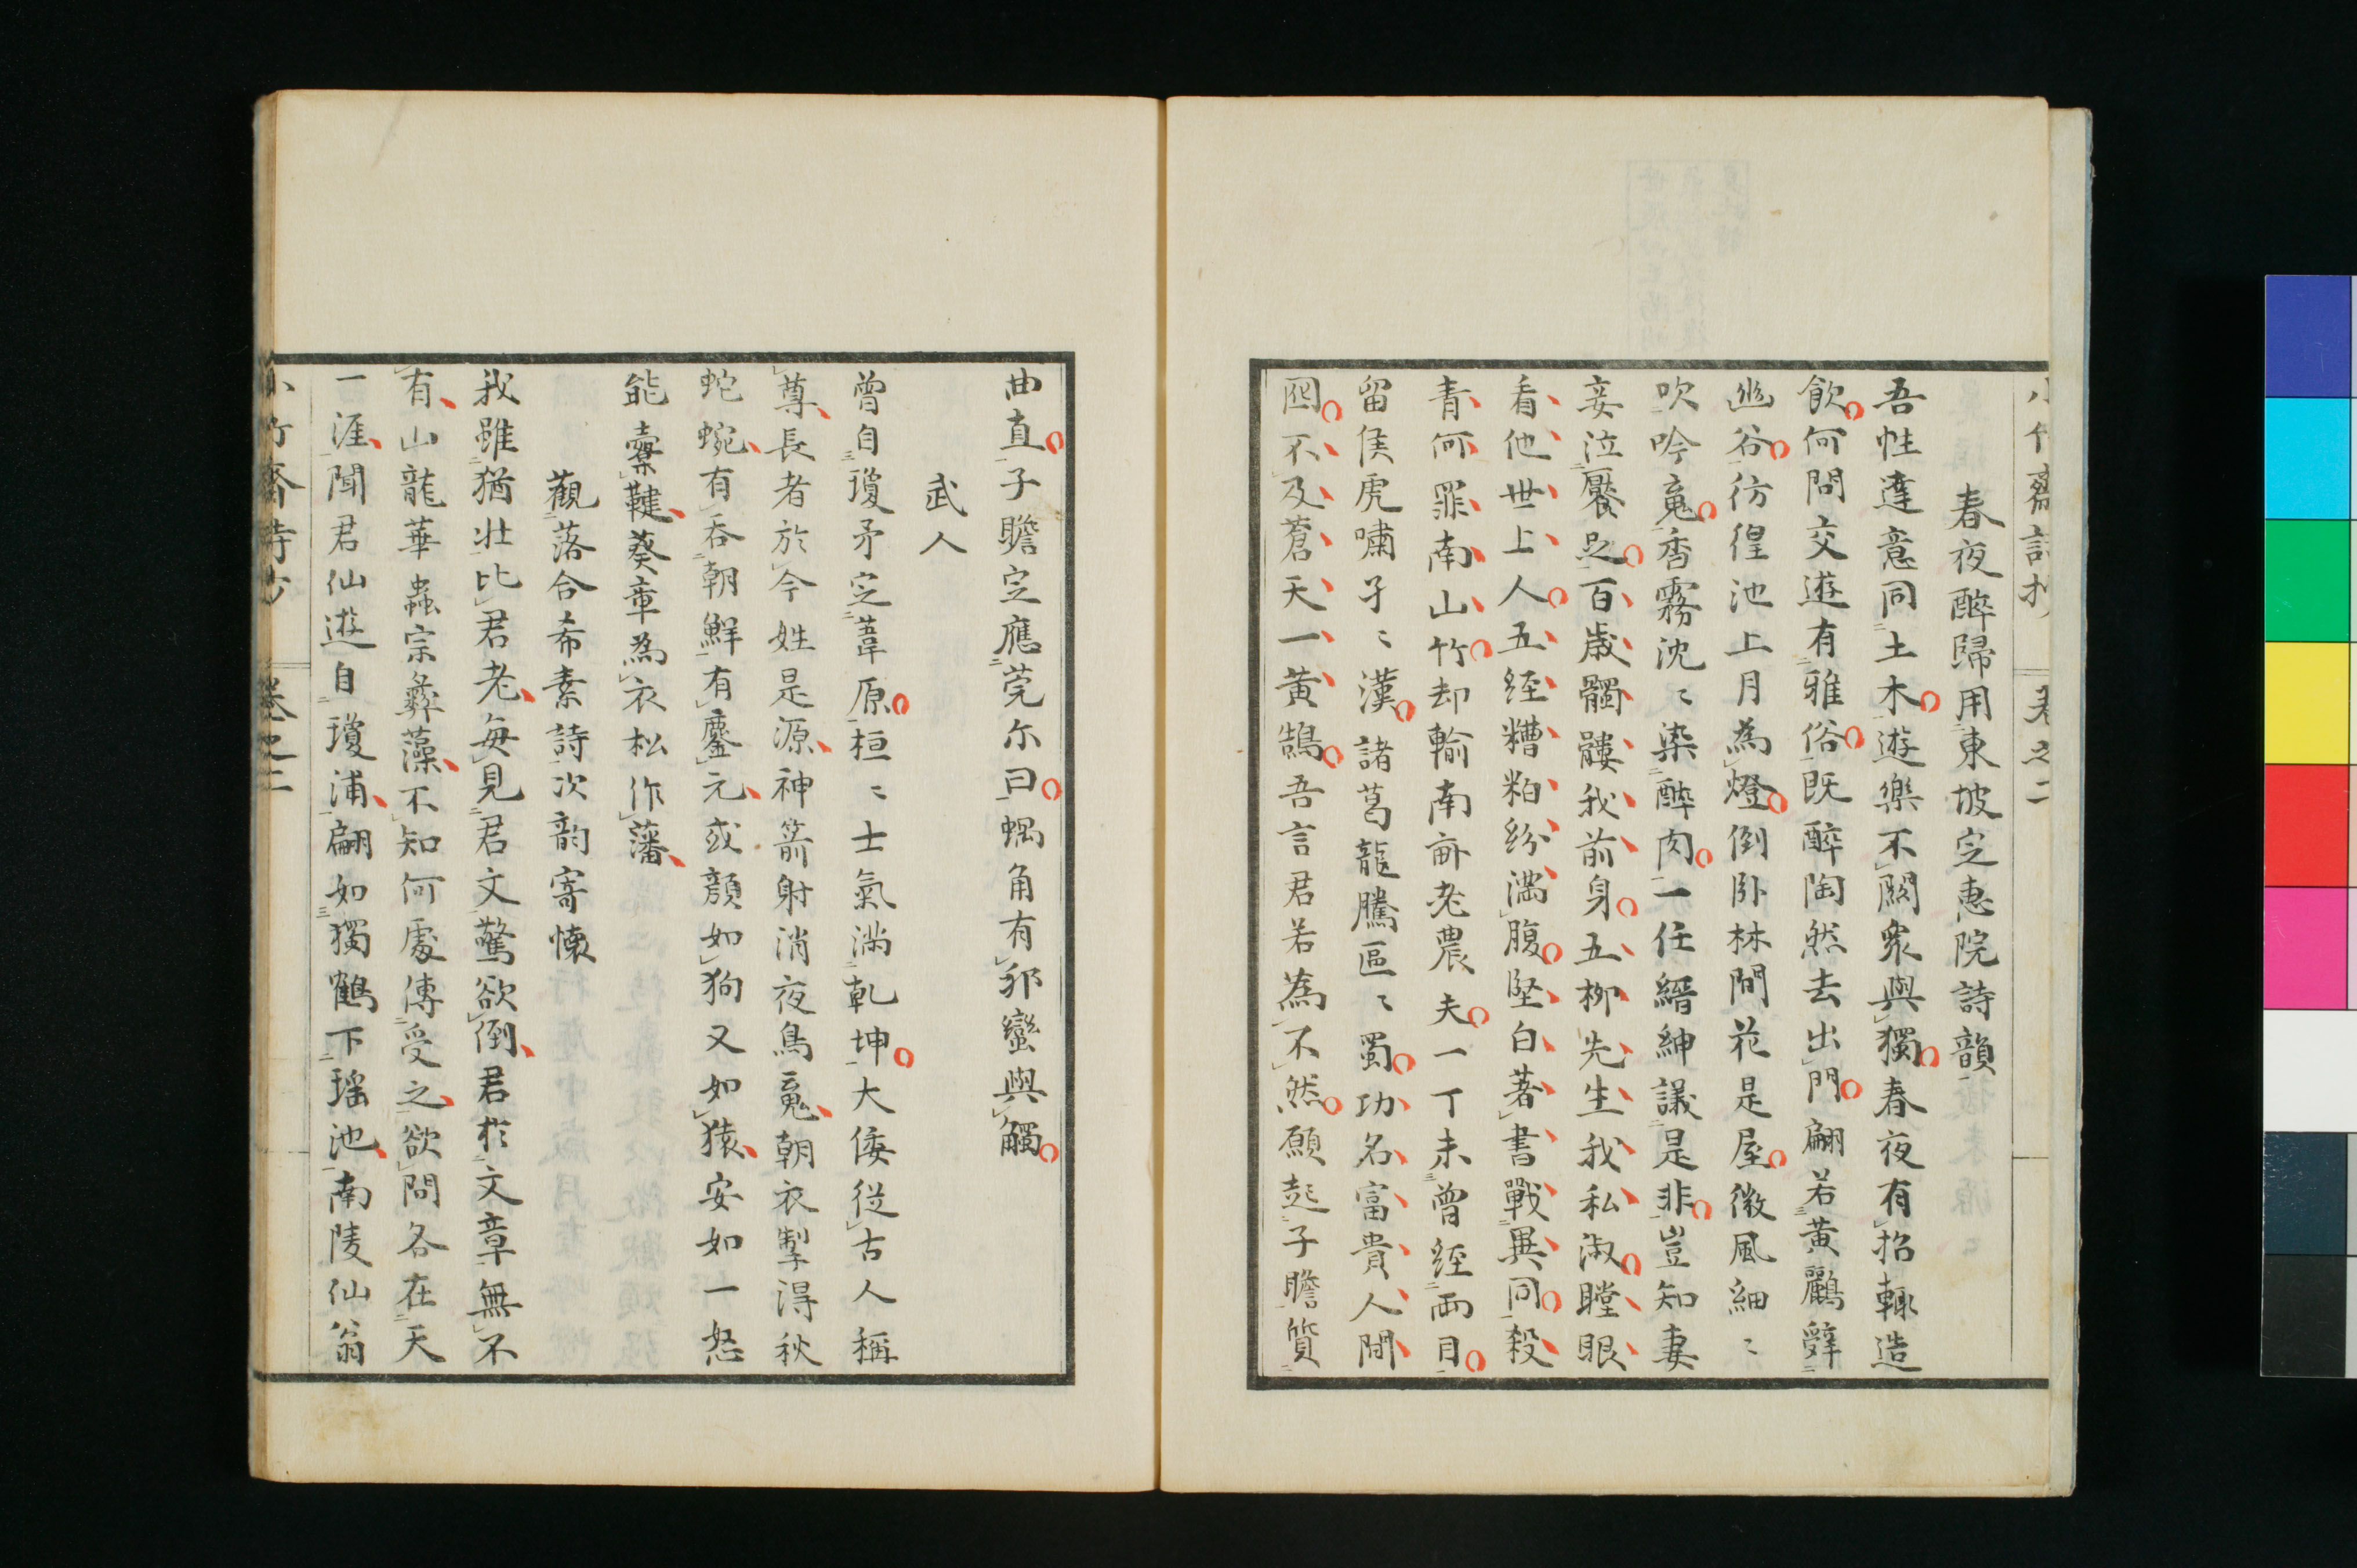 小竹齋詩抄 卷之二
春夜醉歸用東坡定惠院詩韻
吾性達意同土木遊樂不關衆與獨春夜有招輒造
飲何問交遊有雅俗既醉陶然去出門翩若黃鸝辭
幽谷彷徨池上月為燈倒臥林間花是屋微風細〻
吹吟䰟香霧沈〻染醉肉一任縉紳議是非豈知妻
妾泣饜足百歲髑髏我前身五柳先生我私淑瞠眼
看他世上人五經糟粕紛滿腹堅白著書戰異同殺
青何罪南山竹却輸南畝老農夫一丁未曾經兩目
留侯虎嘯孑〻漢諸葛龍騰區〻蜀功名富貴人間
囮不及蒼天一黃鵠吾言君若為不然願起子瞻質
曲直子瞻定應莞尓曰蝸角有邪蠻與觸
武人
曾自瓊矛定葦原桓〻士氣滿乹坤大倭從古人稱
尊長者於今姓是源神箭射消夜鳥䰟朝衣掣得秋
蛇蜿有吞朝鮮有鏖元或顏如狗又如猿安如一怒
能櫜鞬葵章為衣松作藩
觀落合希素詩次韵寄懷
我雖猶壯比君老每見君文驚欲倒君於文章無不
有山龍華蟲宗彝藻不知何處傳受之欲問各在天
一涯聞君仙遊自瓊浦翩如獨鶴下瑶池南陵仙翁
小竹齋詩抄 卷之二